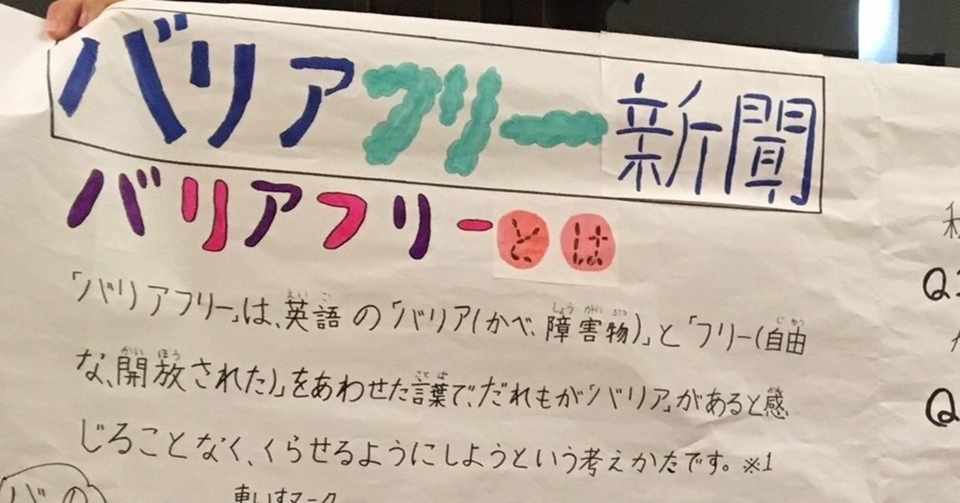 バリアフリー新聞
バリアフリーとは
「バリアフリー」は、英語の「バリア(かべ、障害物)」と「フリー(自由
な、開放された)」をあわせた言葉で、だれもが「バリア」があると感
じることなく、くらせるようにしようという考えかたです。※1
車いすマーク
Q
Q